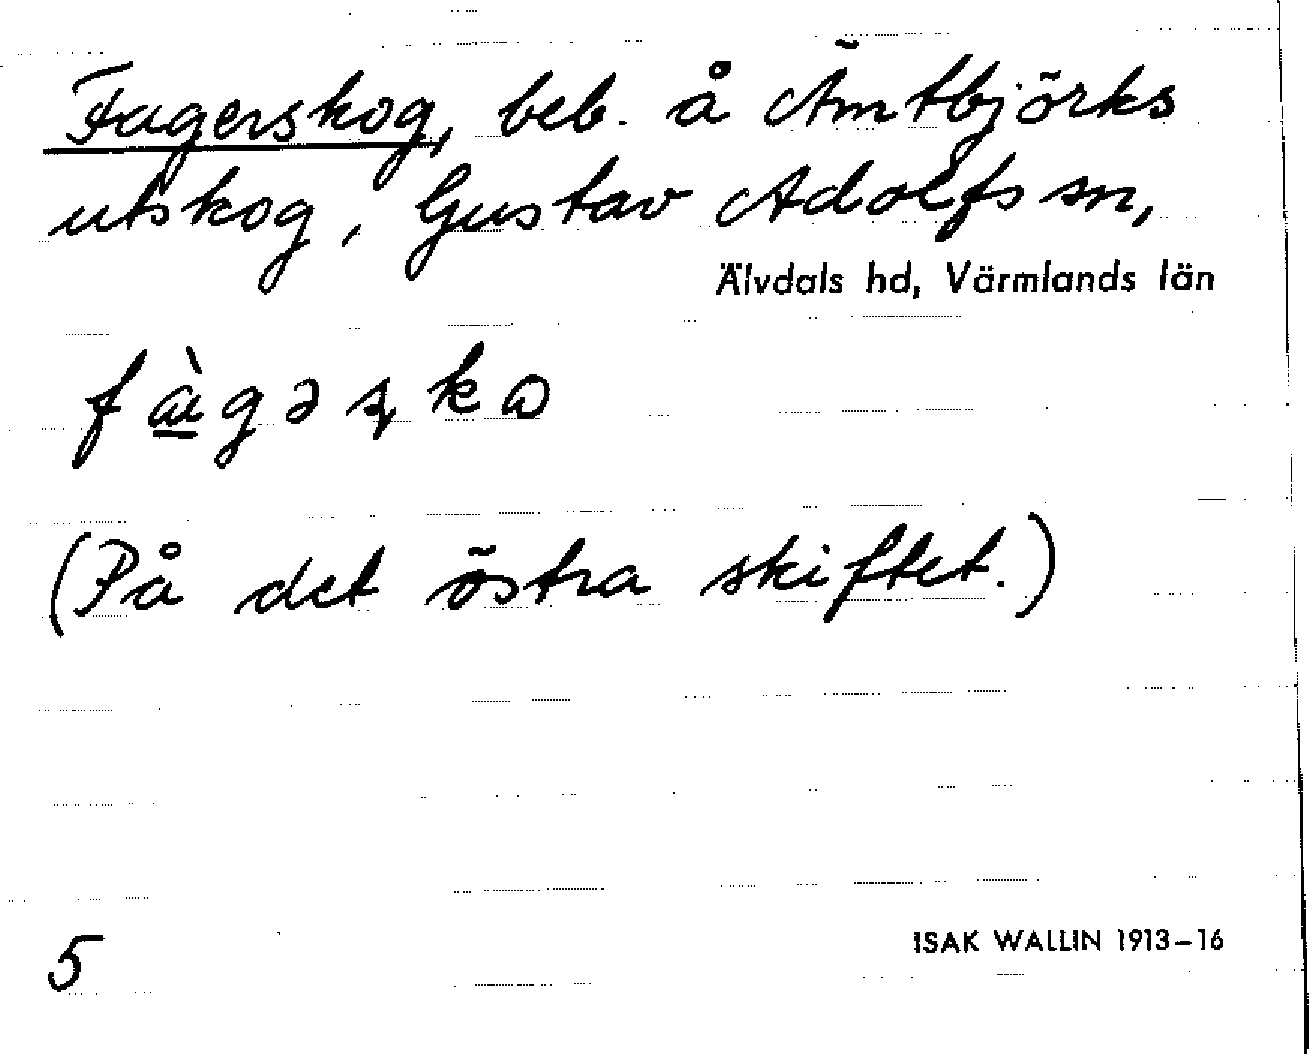 Fagerskog, beb. å Ämtbjörks
utskog, Gustav Adolfs sn,
Älvdals hd, Värmlands län
fàgəʂkɷ
(På det östra skiftet.)
5
ISAK WALLIN 1913–16